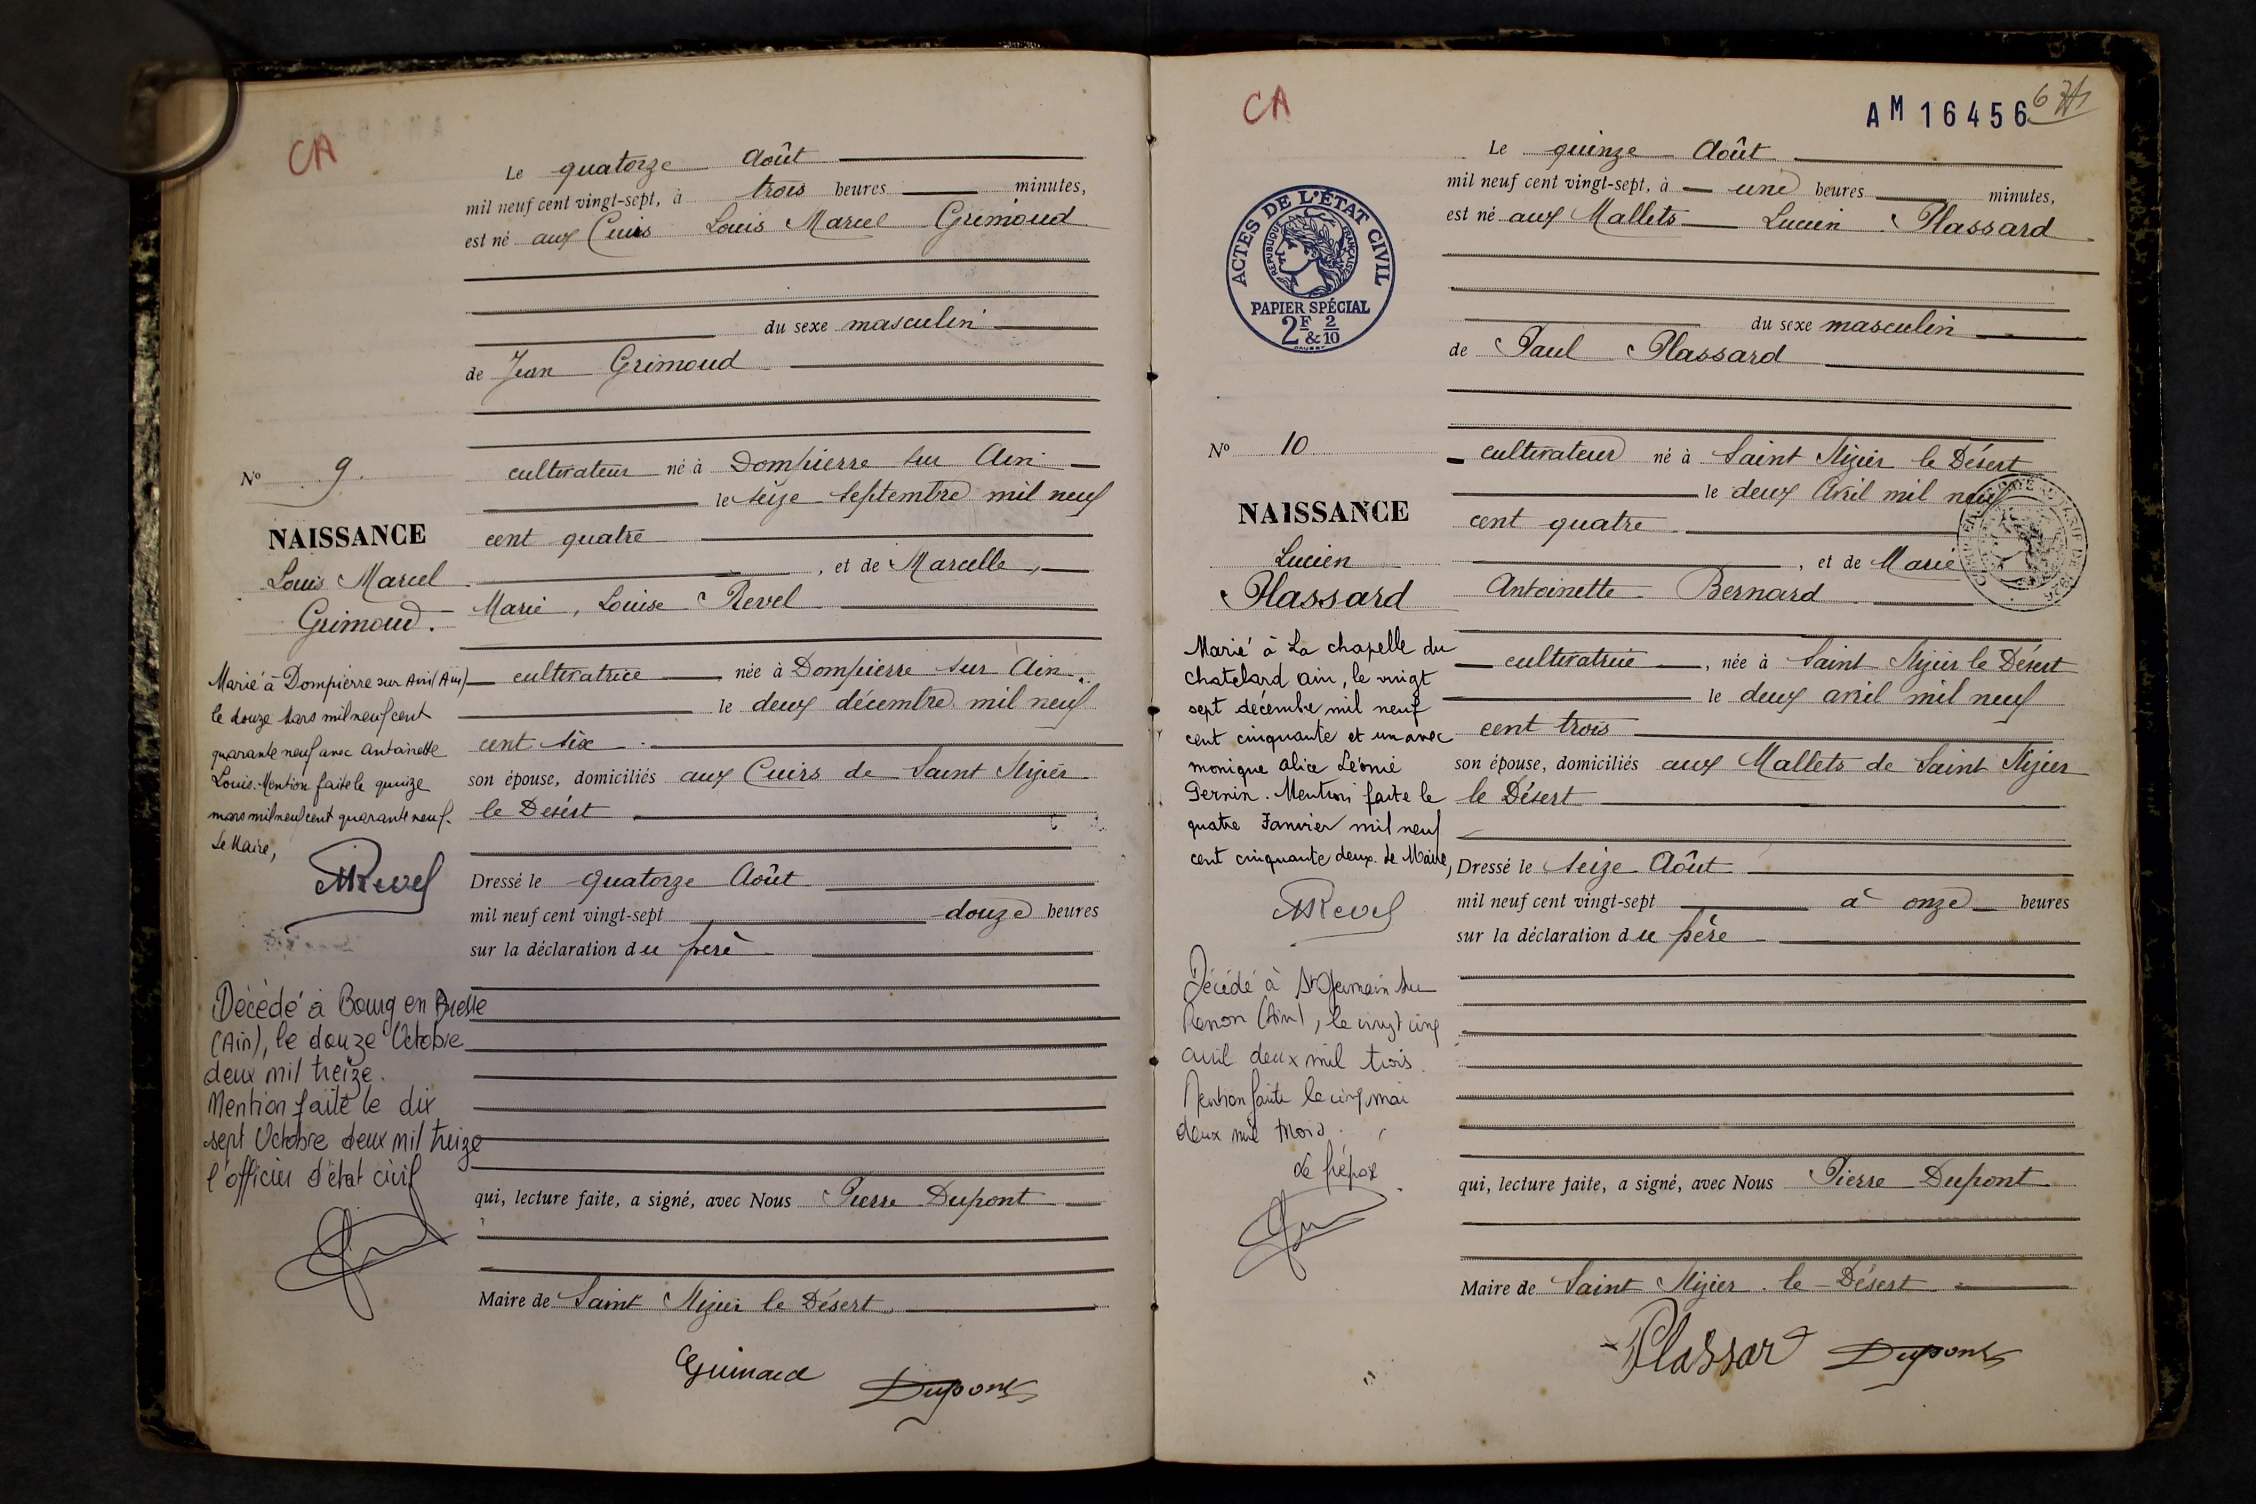 CA
Le quatorze Août
mil neuf cent vingt-sept, à trois heures minutes,
est né aux Cuirs Louis Marcel Grimoud
du sexe masculin
de Jean Grimoud
cultivateur né à Dompierre sur Ain
le seize septembre mil neuf
cent quatre
, et de Marcelle,
Marie, Louise Revel
cultivatrice née à Dompierre sur Ain
le deux décembre mil neuf
cent six
son épouse, domiciliés aux Cuirs de Saint Nizier
le Désert
Dressé le quatorze Août
mil neuf cent vingt-sept douze heures
sur la déclaration du père
qui, lecture faite, a signé, avec Nous Pierre Dupont
Maire de Saint Nizier le Désert
Dupont
No 9.
NAISSANCE
Louis Marcel
Grimoud.
Marié à Dompierre sur Ain (Ain)
le douze Mars mil neuf cent
quarante neuf avec Antoinette
Louis. Mention faite le quinze
mars mil neuf cent quarante neuf.
Le Maire,
MRevel
Décédé à Bourg en Bresse
(Ain), le douze Octobre
deux mil treize.
Mention faite le dix
sept Octobre deux mil treize
l'officier d'état civil
CA
AM 16456
Le quinze Août
mil neuf cent vingt-sept, à une heures minutes,
est né aux Mallets Lucien Plassard
du sexe masculin
de Paul Plassard
cultivateur né à Saint Nizier le Désert
le deux Avril mil neuf
cent quatre
, et de Marie
Antoinette Bernard
cultivatrice, née à Saint Nizier le Désert
le deux avril mil neuf
cent trois
son épouse, domiciliés aux Mallets de Saint Nizier
le Désert
Dressé le seize Août
mil neuf cent vingt-sept à onze heures
sur la déclaration du père
qui, lecture faite, a signé, avec Nous Pierre Dupont
Maire de Saint Nizier le Désert
Plassard Dupont
ACTES DE L'ÉTAT CIVIL
RÉPUBLIQUE FRANÇAISE
PAPIER SPÉCIAL
2F & 2/10
No 10
NAISSANCE
Lucien
Plassard
Marié à La chapelle du
chatelard ain, le vingt
sept décembre mil neuf
cent cinquante et un avec
monique alice Léonie
Pernin. Mention faite le
quatre Janvier mil neuf
cent cinquante deux. Le Maire,
MRevel
Décédé à St Germain sur
Renon (Ain), le vingt cinq
avril deux mil trois.
Mention faite le cinq mai
deux mil trois.